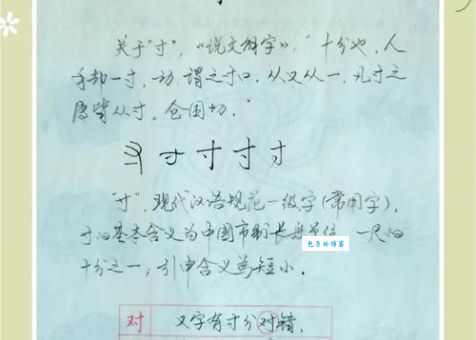 关于"寸",《说文解字》:"十分也,人
手却一寸,动,谓之寸口.从又从一.凡寸之
属皆从寸.仓困切."
寸 寸 寸 寸
"寸",现代汉语规范一级字(常用字),
寸的基本含义为中国市制长度单位,一尺的
十分之一;引申含义为短小.
包子的博客
对 又字有寸分对错,